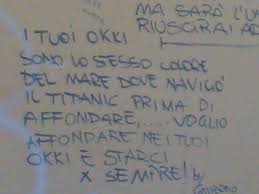 MA SARÒ L'U
RIUSCIRAI AD
I TUOI OKKI
SONO LO SESSO COLORE
DEL MARE DOVE NAVIGÒ
IL TITANIC PRIMA DI
AFFONDARE,..... VOGLIO
AFFONDARE NEI TUOI
OKKI E STARCI
X SEMPRE! by